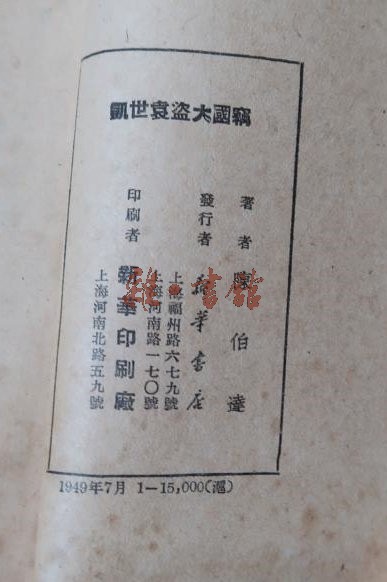 竊國大盜袁世凱
著者 陳伯達
發行者 新華書店
上海福州路六七九號
上海河南路一七〇號
印刷者 新華印刷廠
上海河南北路五九號
1949年7月 1—15,000(滬)
雜·書館